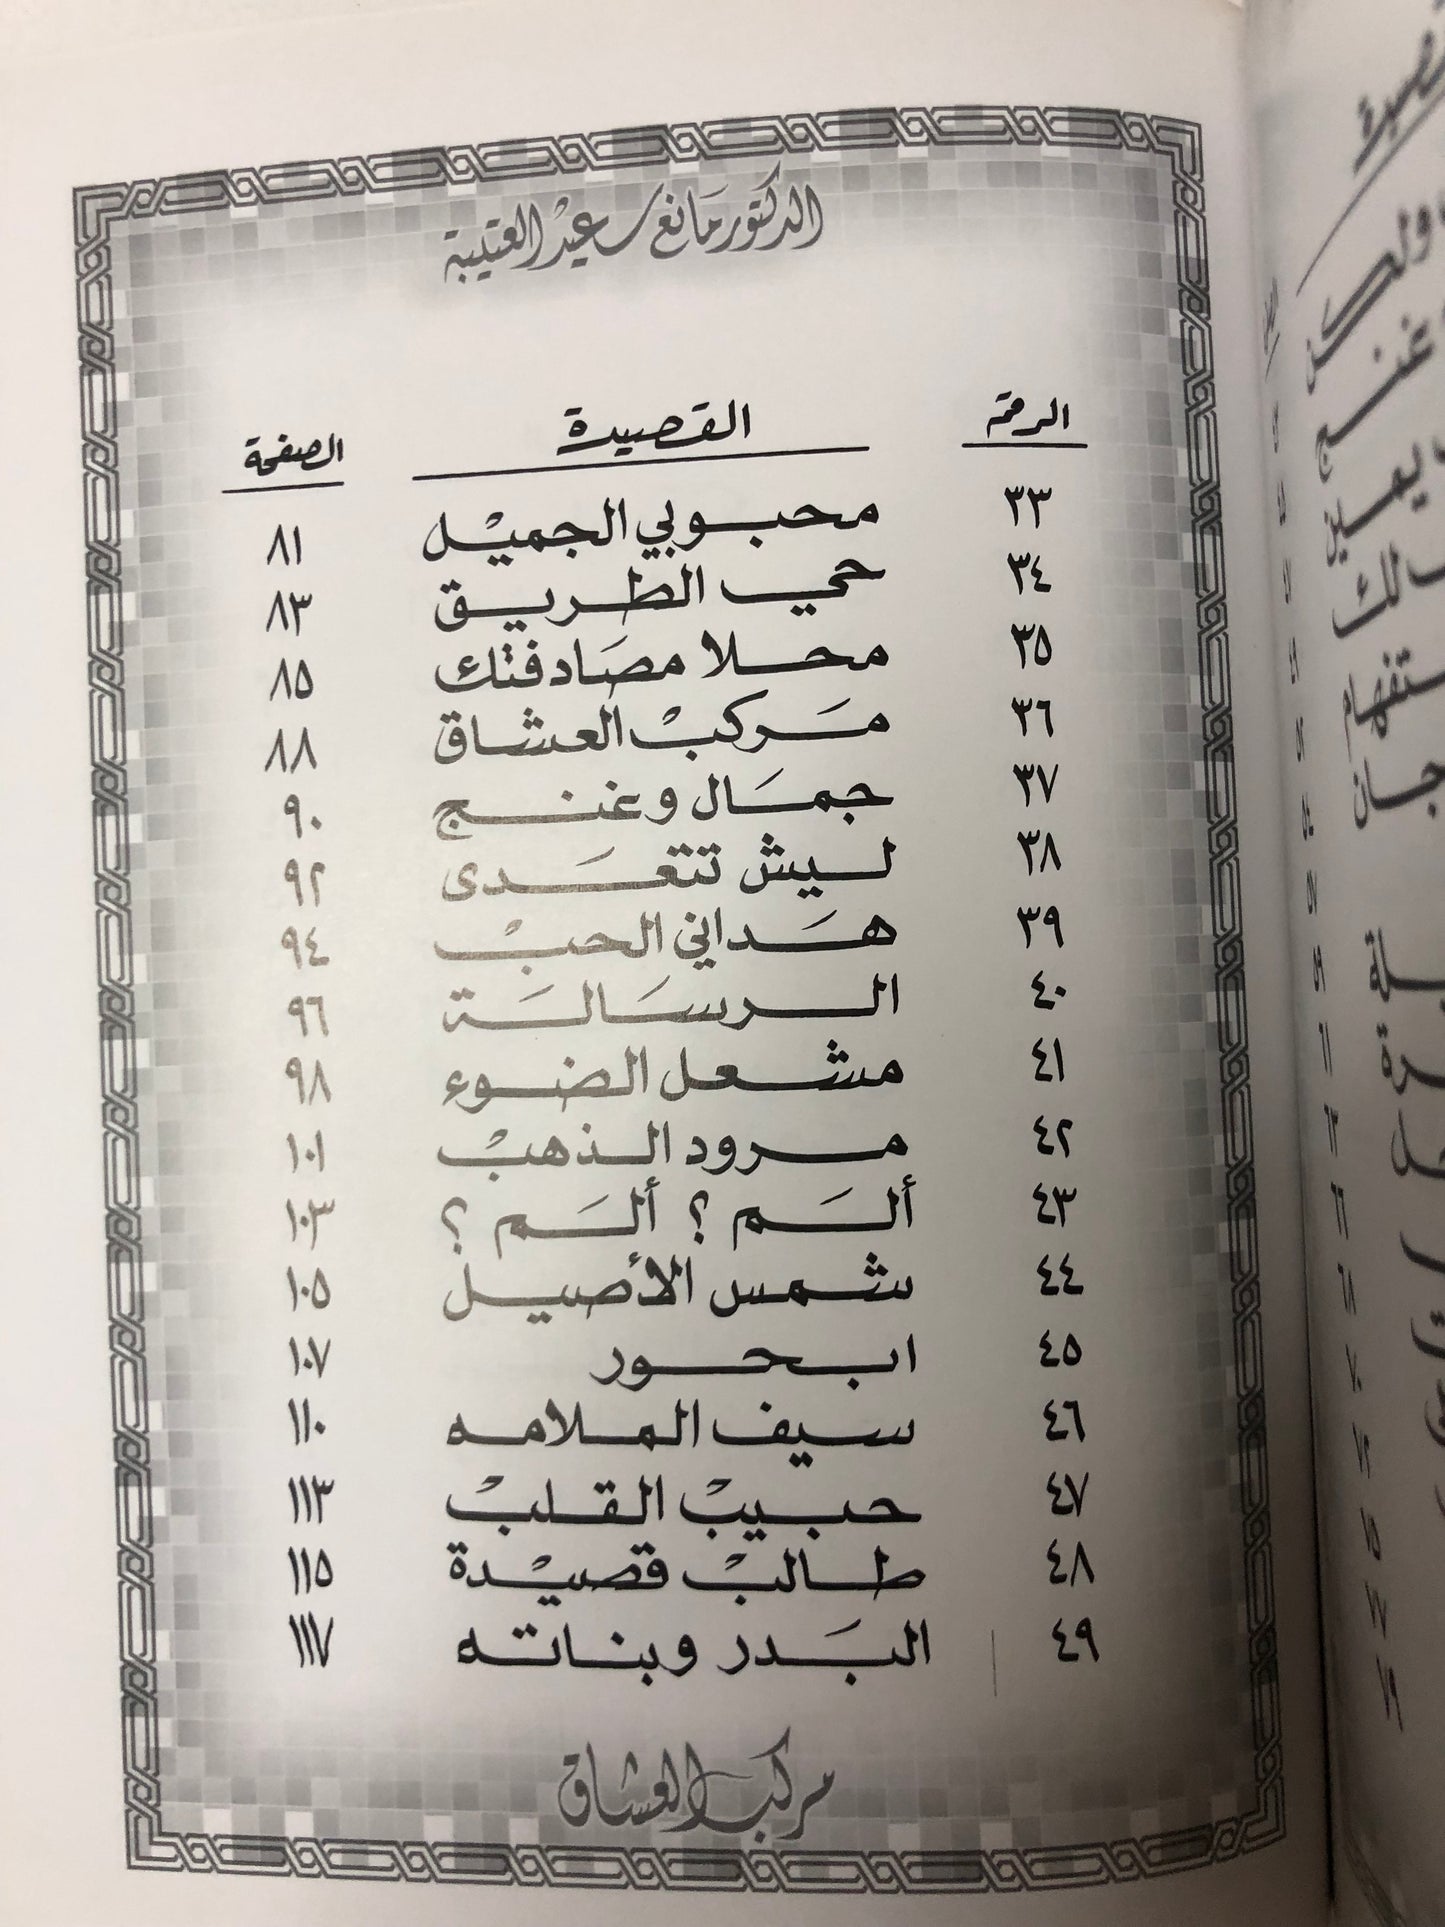 الدكتور مانع سعيد العتيبة
الرقم القصيدة الصفحة
٣٣ محبوبي الجميْل ٨١
٣٤ حي الطريق ٨٣
٣٥ محلا مصَادفتك ٨٥
٣٦ مَركبْ العشاق ٨٨
٣٧ جمَال وغنج ٩٠
٣٨ ليش تتعَدى ٩٢
٣٩ هَداني الحبْ ٩٤
٤٠ الرسَالَة ٩٦
٤١ مشعل الضوء ٩٨
٤٢ مرود الذهبْ ١٠١
٤٣ ألَم ؟ ألَم ؟ ١٠٣
٤٤ شمس الأصيل ١٠٥
٤٥ ابحور ١٠٧
٤٦ سيف الملامه ١١٠
٤٧ حبيبْ القلبْ ١١٣
٤٨ طالبْ قصيْدة ١١٥
٤٩ البَدر وبناته ١١٧
مركب العشاق